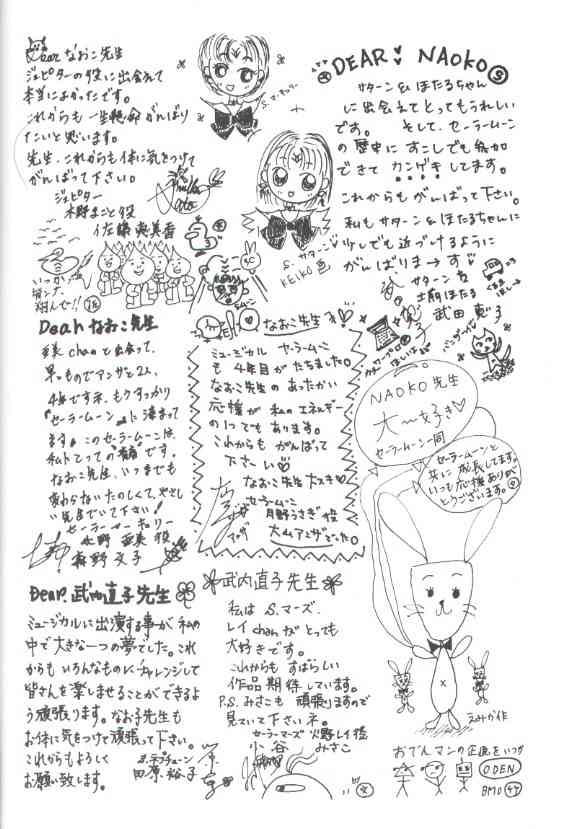 Dear なおこ先生
ジュピターの役に出会えて
本当によかったです。
これからも一生懸命がんばり
たいと思います。
先生、これからも体に気をつけて
がんばって下さい。
ジュピター
木野まこと役
佐藤恵美香
S.マーキュリー
S.サターン
KEIKO 画
DEAR NAOKO
サターン&ほたるちゃん
に出会えてとってもうれしい
です。そして、セーラームーン
の歴史にすこしでも参加
できて カンゲキしてます。
これからもがんばって下さい。
私もサターン&ほたるちゃんに
少しでも近づけるように
がんばりまーす
サターン
土萠ほたる
武田恵子
Dear なおこ先生
亜美chanと出会って、
早いものでアンザと2人、
4年ですネ。もうすっかり
"セーラームーン"に染まって
ます。このセーラームーンは、
私にとっての青春です。
なおこ先生、いつまでも
変わらないたのしくて、やさしい
先生でいて下さい!
セーラーマーキュリー
水野亜美役
森野文子
なおこ先生
ミュージカル セーラームーン
も4年目がたちました。
なおこ先生のあったかい
応援が私のエネルギー
の1つでもあります。
これからもがんばって
下さーい
なおこ先生大スキ
セーラームーン
月野うさぎ役
大山アンザでした。
NAOKO先生
大〜好き
セーラームーン一同
セーラームーンと
共に成長してます。
いつも応援ありが
とうございます。
えみか作
Dear. 武内直子先生
ミュージカルに出演する事が、私の
中で大きな一つの夢でした。これ
からもいろんなものにチャレンジして
皆さんを楽しませることができるよ
う頑張ります。なお子先生も
お体に気をつけて頑張って下さい。
これからもよろしく
お願い致します。
S.ネプチューン
田原裕子
武内直子先生
私はS.マーズ、
レイchanがとっても
大好きです。
これからもすばらしい
作品期待しています。
P.S. みさこも頑張りますので
見ていて下さいネ。
セーラーマーズ 火野レイ役
小谷みさこ
おでんマンの正体をいつか
ODEN